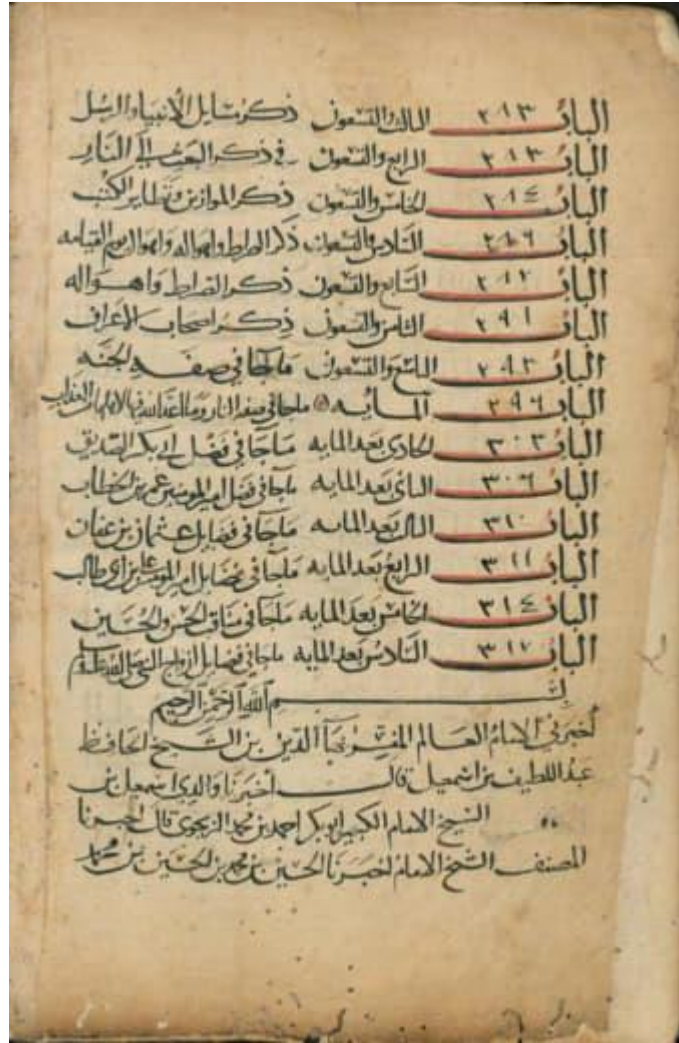 الباب ٢١٣ الثالث والتسعون ذكر مسايل الانبياء والرسل
الباب ٢١٣ الرابع والتسعون في ذكر البعث الى النار
الباب ٢١٤ الخامس والتسعون ذكر الموازين وتطاير الكتب
الباب ٢٨٦ السادس والتسعون ذكر الصراط واهواله واهوال يوم القيامه
الباب ٢٨٧ السابع والتسعون ذكر الصراط واهواله
الباب ٢٩١ الثامن والتسعون ذكر اصحاب الاعراف
الباب ٢٩٣ التاسع والتسعون ماجا في صفه الجنه
الباب ٢٩٦ المايه ماجا في صفه النار وما اعد الله فيها لاهلها من العذاب
الباب ٣٠٣ الحادى بعد المايه ماجا في فضل ابي بكر الصديق
الباب ٣٠٦ الثانى بعد المايه ماجا في فضل امير المومنين عمر بن الخطاب
الباب ٣١٠ الثالث بعد المايه ماجا في فضايل عثمان بن عفان
الباب ٣١١ الرابع بعد المايه ماجا في فضايل امير المومنين على بن ابى طالب
الباب ٣١٤ الخامس بعد المايه ماجا في مناقب الحسن والحسين
الباب ٣١٧ السادس بعد المايه ماجا في فضايل ازواج النبى صلى الله عليه وسلم
بسم الله الرحمن الرحيم
أخبرني الامام العالم المقرئ نجا الدين بن الشيخ الحافظ
عبد اللطيف بن اسمعيل قال أخبرنا والدي اسمعيل بن
الشيخ الامام الكبير ابو بكر احمد بن محمد الزنجوى قال اخبرنا
المصنف الشيخ الامام اخبرنا الحسين بن محمد بن الحسين بن محمد